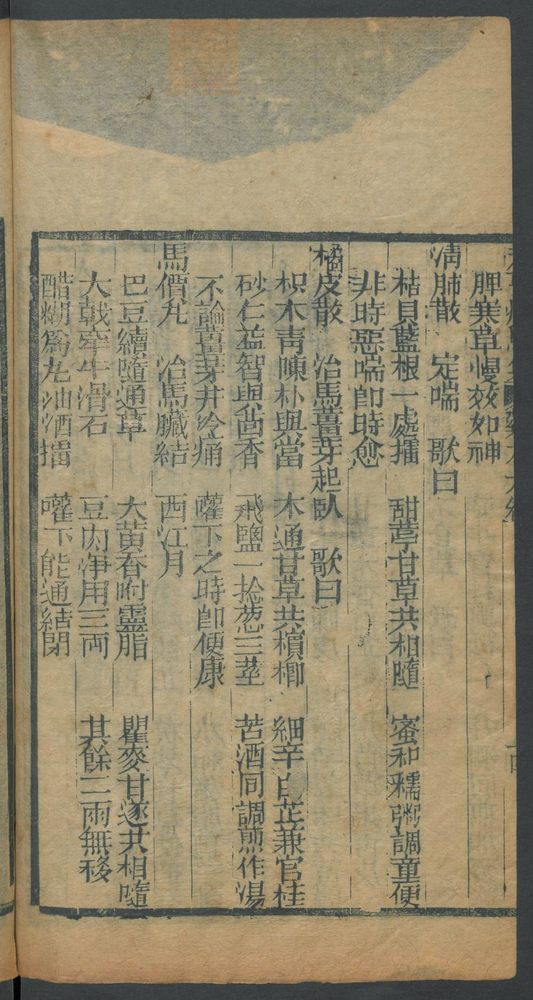 脾寒草慢效如神
清肺散 定喘 歌曰
枯貝藍根一處擂 甜葶甘草共相隨 蜜和糯粥調童便
非時惡喘即時愈
橘皮散 治馬薑芽起臥 歌曰
枳术青陳朴與當 木通甘草共檳榔 細辛白芷兼官桂
砂仁益智與茴香 飛鹽一捻葱三莖 苦酒同調煎作湯
不論薑芽并冷痛 嚾下之時即便康
馬價丸 治馬臟結 西江月
巴豆續隨通草 大黃香附靈脂 瞿麥甘遂共相隨
大戟牽牛滑石 豆肉淨用三兩 其餘二兩無移
醋糊為丸油酒擂 嚾下能通結閉